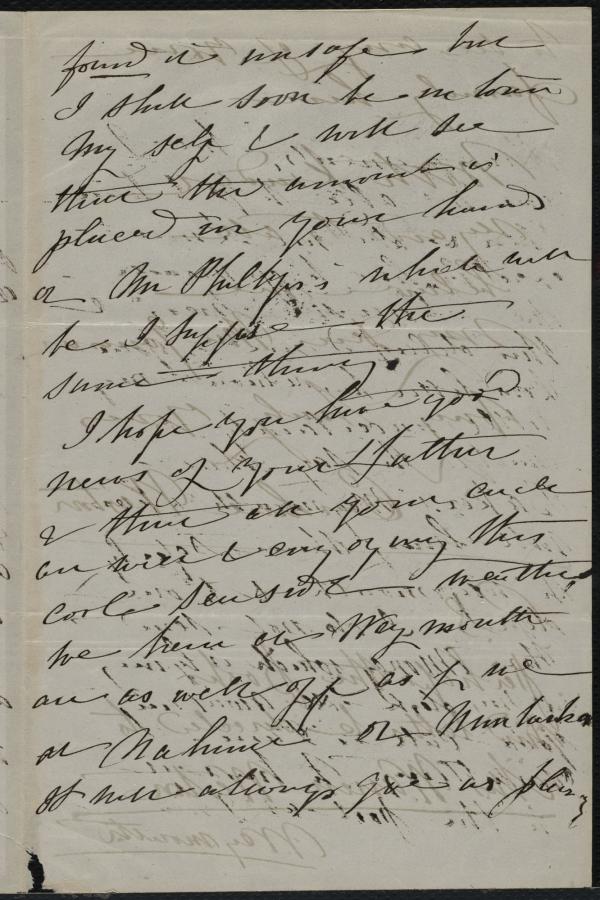 found it unsafe but
I shall soon be in town
my self & will see
that the amount is
placed in your hands
or Mr Phillips's which will
be I suppose the
same thing.
I hope you have good
news of your father
& that all your circle
are well & enjoying this
cool seaside weather
we here at Weymouth
are as well off as if we
at Nahant or
It will always give us